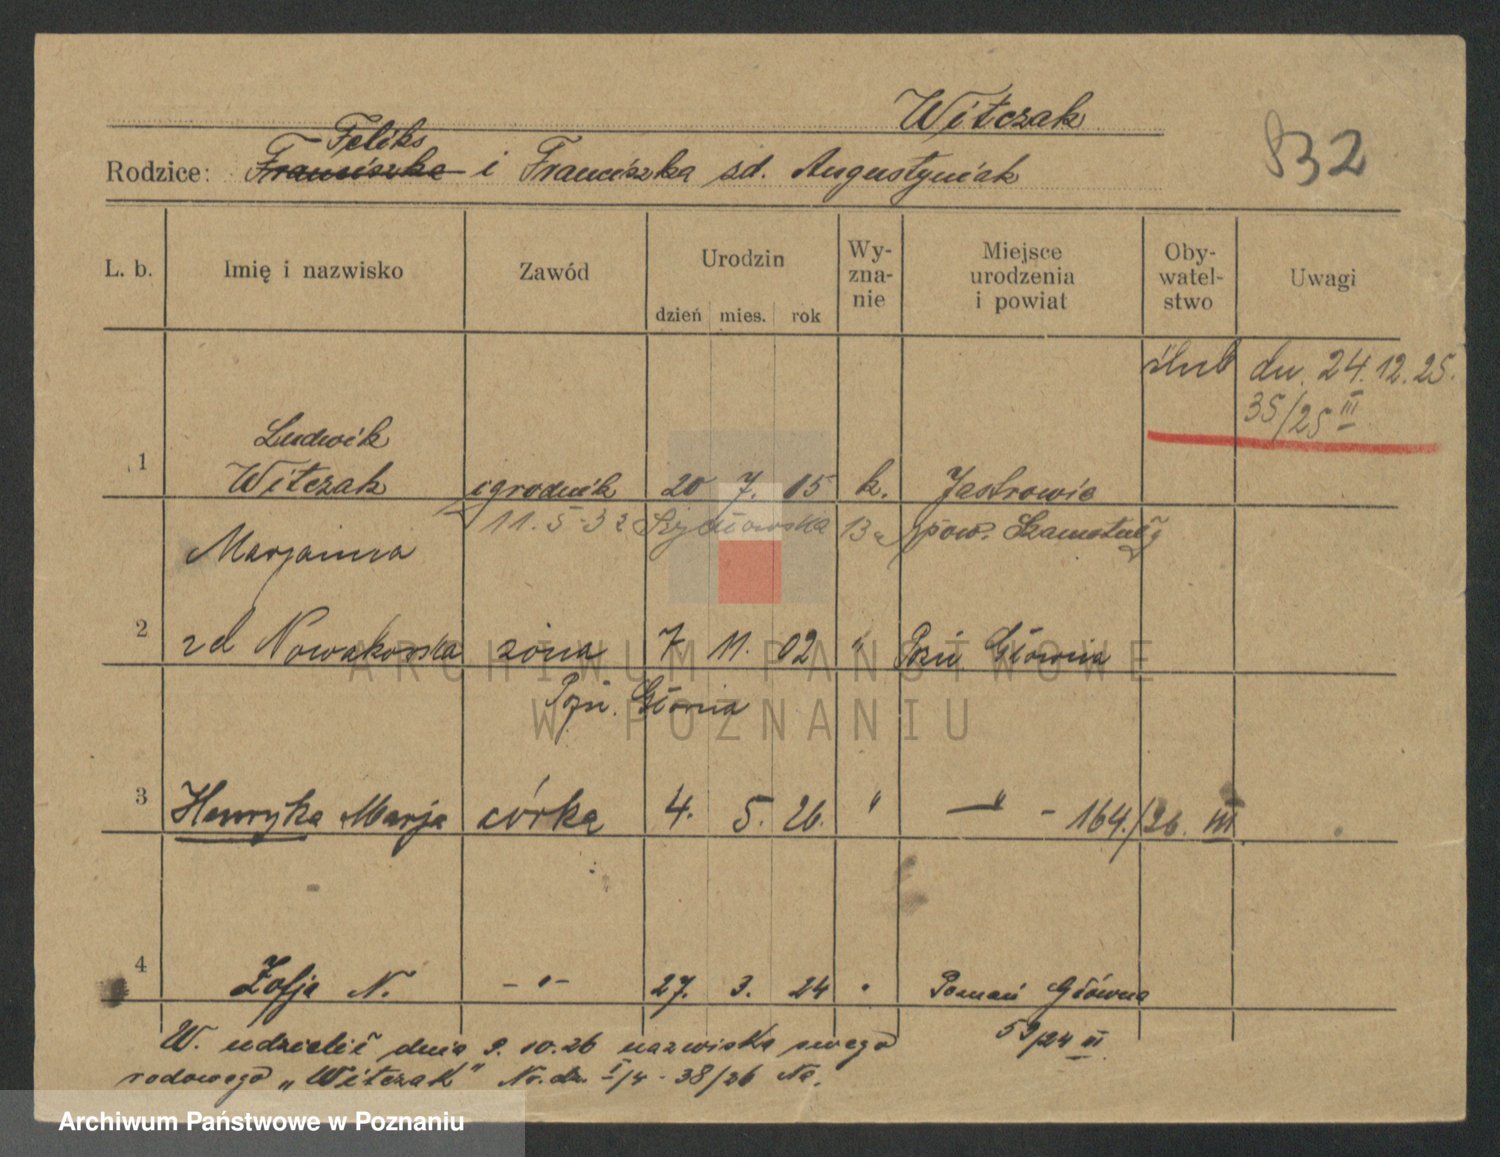 Witczak
832
Feliks
Rodzice: Franciszka i Franciszka zd. Augustyniak
L. b. Imię i nazwisko Zawód Urodzin dzień mies. rok Wy-zna-nie Miejsce urodzenia i powiat Oby-watel-stwo Uwagi
ślub dn. 24.12.25.
35/25 III
Ludwik
1 Witczak ogrodnik 20 7. 05 k. Jastrowie
11.5.32 Szydłowska 13a pow. Szamotuły
Marjanna
2 zd Nowakowska żona 7 11. 02 " Pozn Główna
Pozn. Główna
3 Henryka Marja córka 4. 5. 26. " — " - 164./26. III
4 Zofja N. - " - 27. 3. 24 " Poznań Główna
W. udzielił dnia 9.10.26 nazwiska swego 59/24 III
rodowego „Witczak" Nr. dz. I/4 - 38/26 Na.
ARCHIWUM PAŃSTWOWE
W POZNANIU
Archiwum Państwowe w Poznaniu